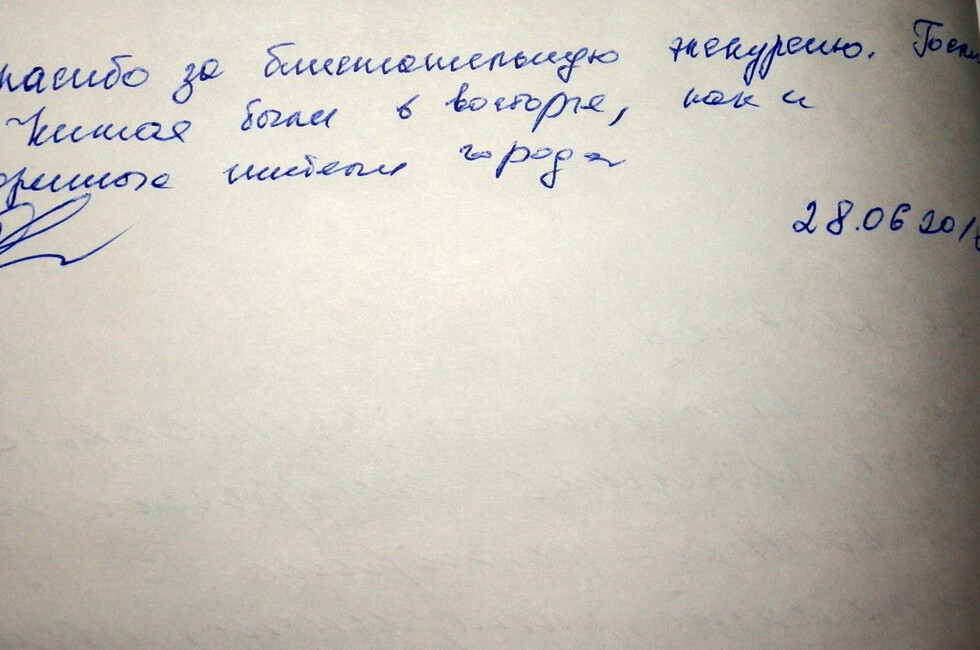 пасибо за блистательную экскурсию. Гост
Китая были в восторге, как и
оренные жители города
28.06 201